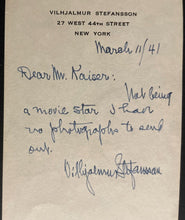 VILHJALMUR STEFANSSON
27 WEST 44TH STREET
NEW YORK
March 11/41
Dear Mr. Kaiser:
Not being
a movie star I have
no photographs to send
out.
Vilhjalmur Stefansson